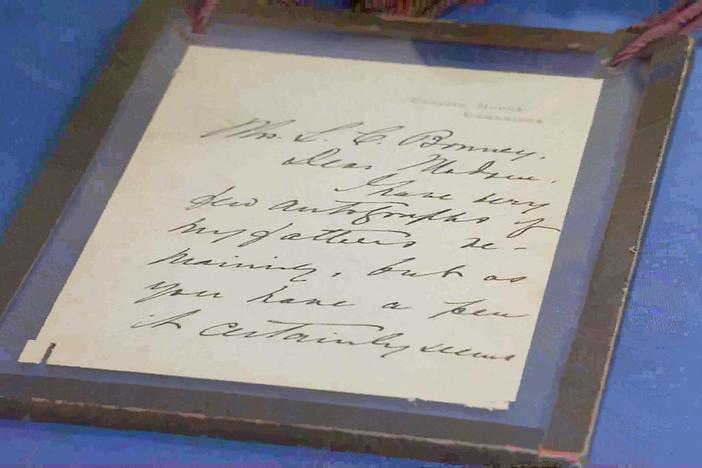 Craigie House
Cambridge
Mrs. L. C. Bonney.
Dear Madam.
I have very
few autographs of
my father's re-
maining, but as
you have a pen
it certainly seems